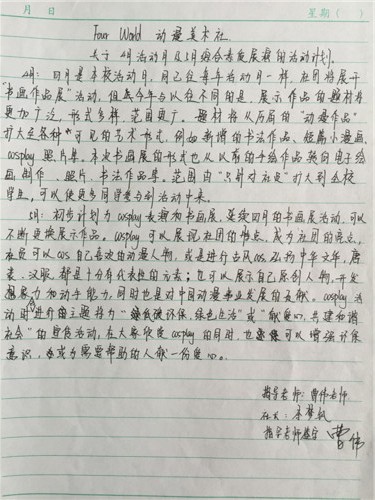 月 日 星期( )
Four World 动漫美术社
关于4月活动月及5月综合素质展褶的活动计划。
4月:四月是本校活动月,同已往每年活动月一样,社团将展示
"书画作品展"活动,但与今年与以往不同的是,展示作品的题材将
更加广泛,形式多样,范围更广。题材将从历届的"动漫作品"
扩大至各种可见的艺术形式,例如新增的书法作品、短篇小漫画、
cosplay照片集。本次书画展的形式也从以前的手绘作品转向电子绘
画制作、照片、书法作品集。范围由"只针对社员"扩大到全校
学生,可以使更多同学参与到活动中来。
5月:初步计划为cosplay长褶和书画展,延续四月的书画展活动,可以
不断更换展示作品。cosplay可以展现社团的特点,成为社团的亮点,
社员可以cos自己喜欢的动漫人物,或是进行古风cos,弘扬中华文华,唐
装、汉服都是十分有代表性的元素;也可以展示自己原创人物,开发
想象力和动手能力,同时也是对中国动漫事业发展的贡献。cosplay活
动时进行的主题将为"绿色低碳环保,绿色生活"或"献爱心,共建和谐
社会"的宣传活动,在大家欣赏cosplay的同时,也可以增强环保
意识,或为需要帮助的人献一份爱心。
指导老师:曹伟老师
社长:
指导老师签字 曹伟